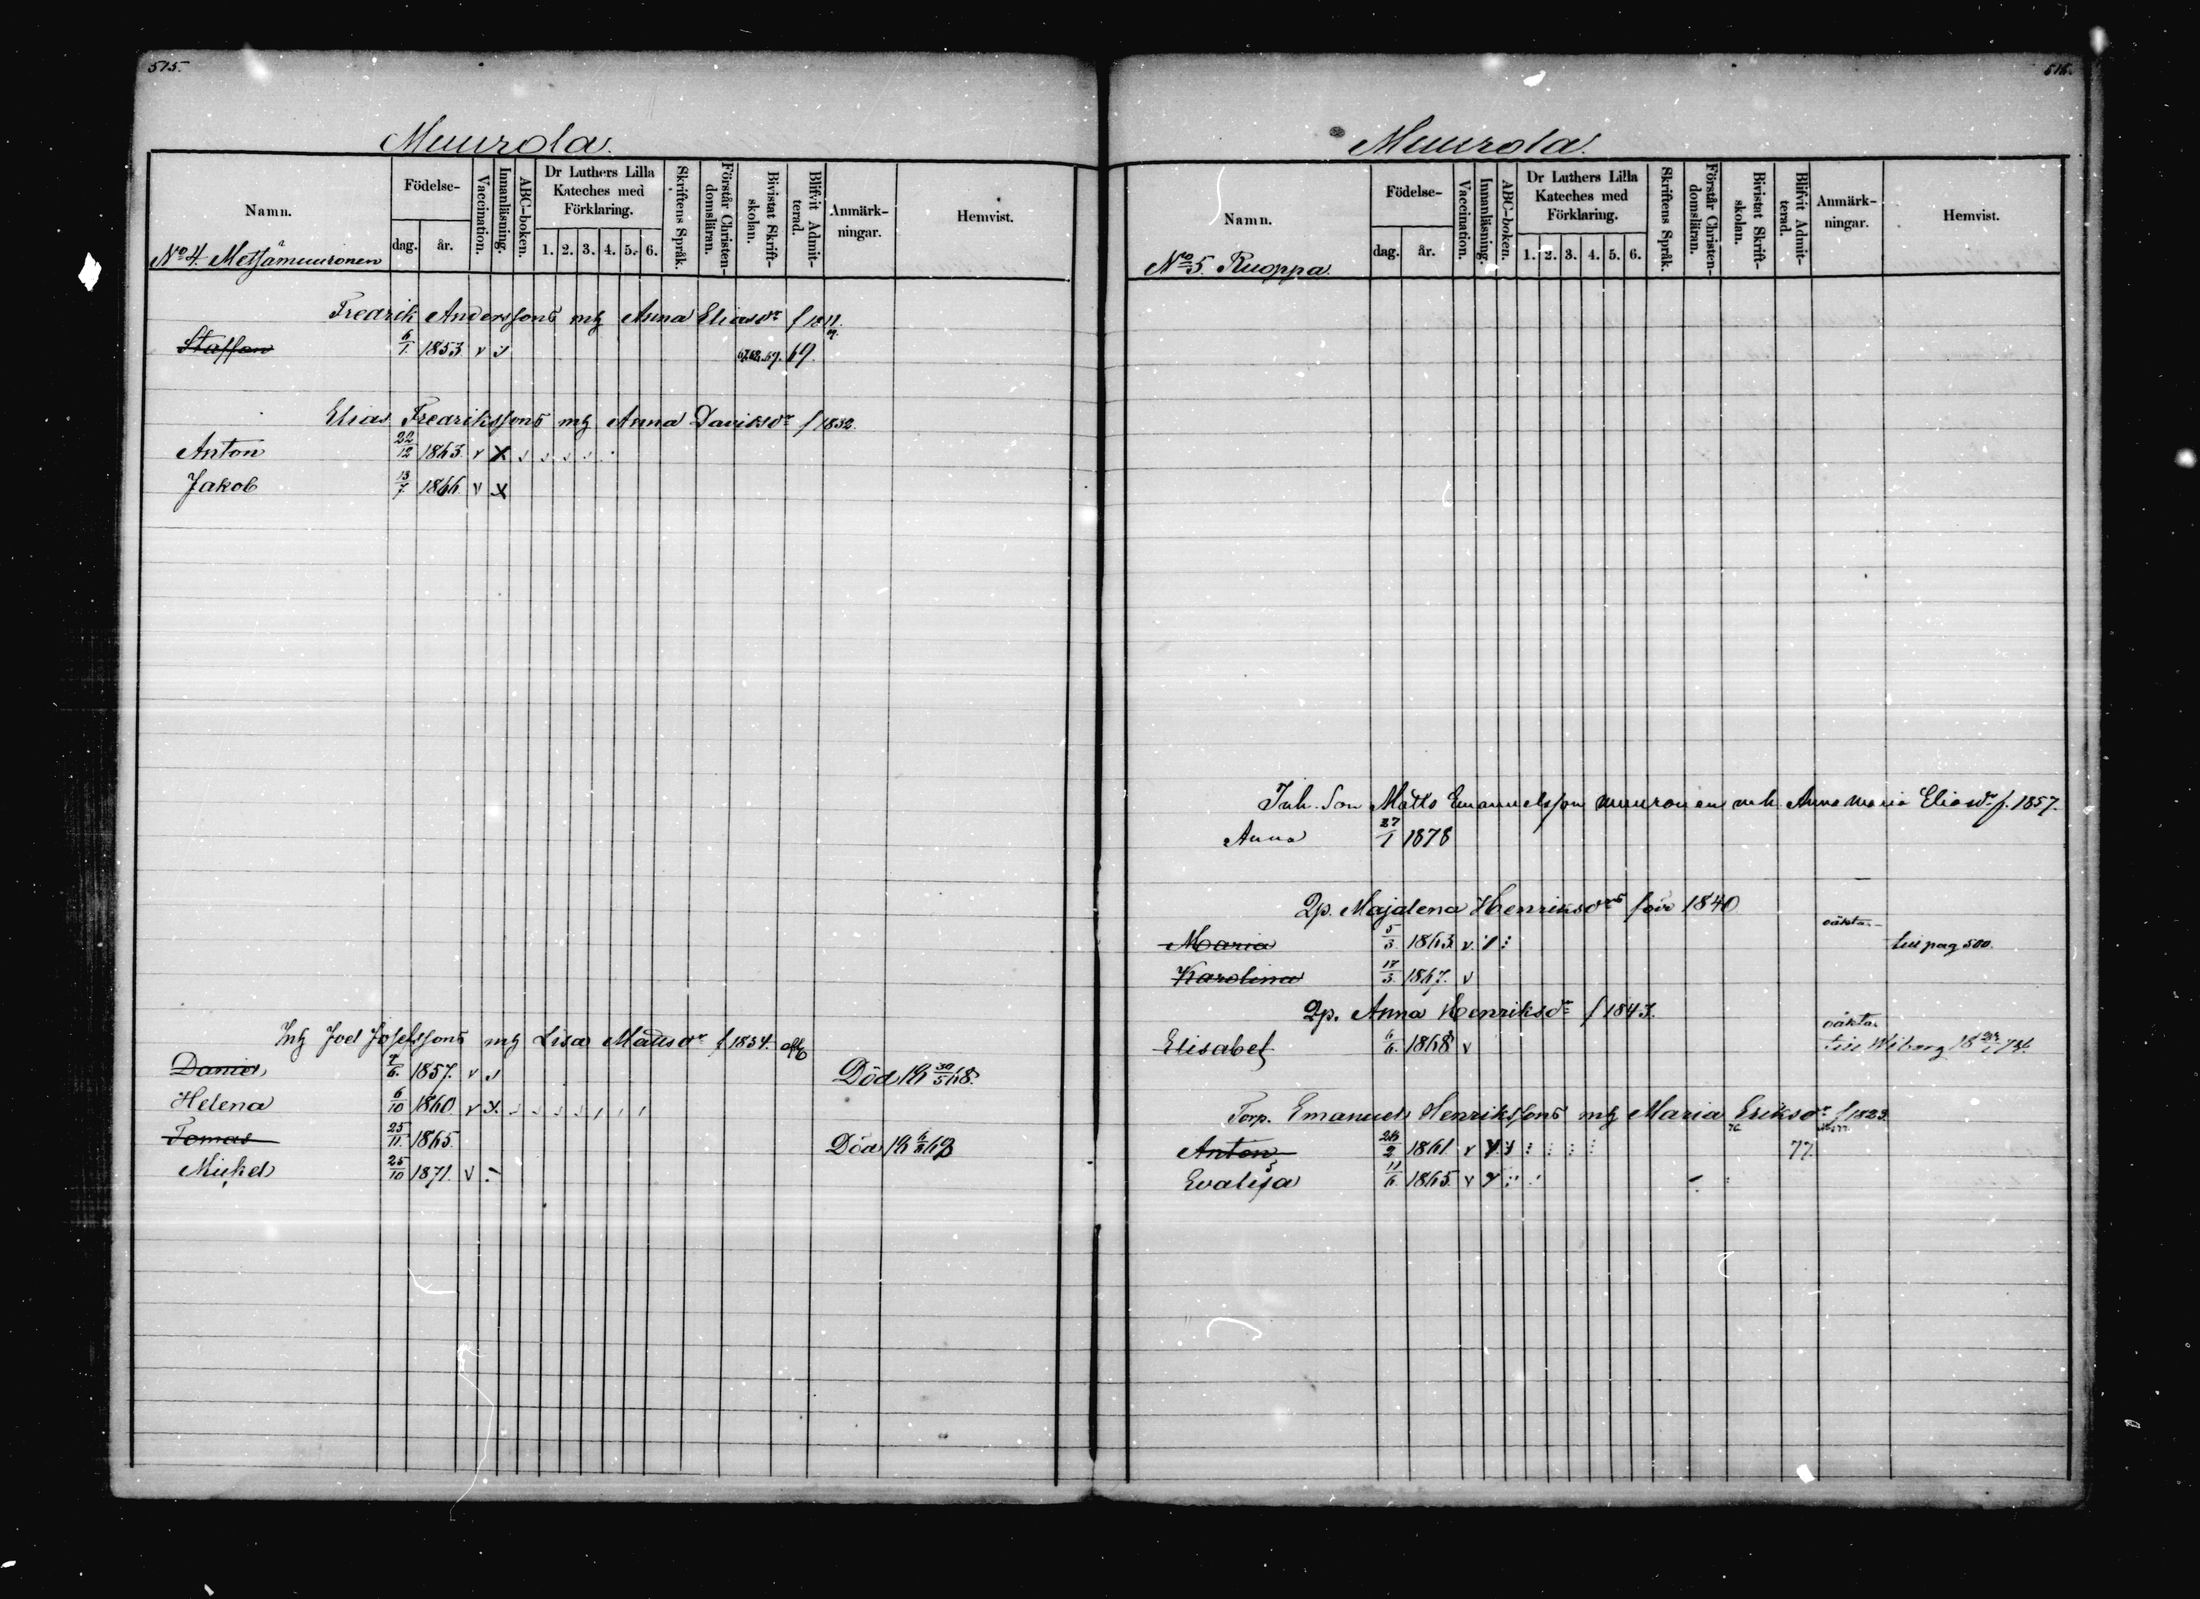 515.
Muurola.
Namn.
Födelse-
dag. år.
Vaccination.
Innanläsning.
ABC-boken.
Dr Luthers Lilla
Kateches med
Förklaring.
1. 2. 3. 4. 5. 6.
Skriftens Språk.
Förstår Christen-
domsläran.
Bivistat Skrift-
skolan.
Blifvit Admit-
terad.
Anmärk-
ningar.
Hemvist.
No 4. Metsämuuronen
Fredrik Anderssons mg Anna Eliasdr f 1811.
Staffan 6/1 1853 v 69.
Elias Fredrikssons mg Anna Davidsdr f 1832.
Anton 22/12 1863 v x
Jakob 13/7 1866 v x
Inh Joel Josefssons mg Lisa Mattsdr f 1834.
Daniel 4/6. 1857. v Död 18 30/5 68.
Helena 6/10 1860 v x
Tomas 25/11 1865. Död 18 6/8 68
Mickel 25/10 1871. v
516.
Muurola.
Namn.
Födelse-
dag. år.
Vaccination.
Innanläsning.
ABC-boken.
Dr Luthers Lilla
Kateches med
Förklaring.
1. 2. 3. 4. 5. 6.
Skriftens Språk.
Förstår Christen-
domsläran.
Bivistat Skrift-
skolan.
Blifvit Admit-
terad.
Anmärk-
ningar.
Hemvist.
No 5. Ruoppa.
Inh. Son Matts Emanuelsson Muuronen m h. Anna Maria Eliasdr f. 1857.
Anna 27/1 1878
Qp. Majalena Henriksdrs för 1840
oäkta
Maria 5/3 1863 v till pag 500.
Karolina 17/3. 1867. v
Qp. Anna Henriksdr f 1843.
oäkta
Elisabet 6/6. 1868 v till Wiborg
Torp. Emanuel Henrikssons mg Maria Eriksdr f 1823.
Anton 26/2 1861 v 77
Evalisa 11/6. 1865 v